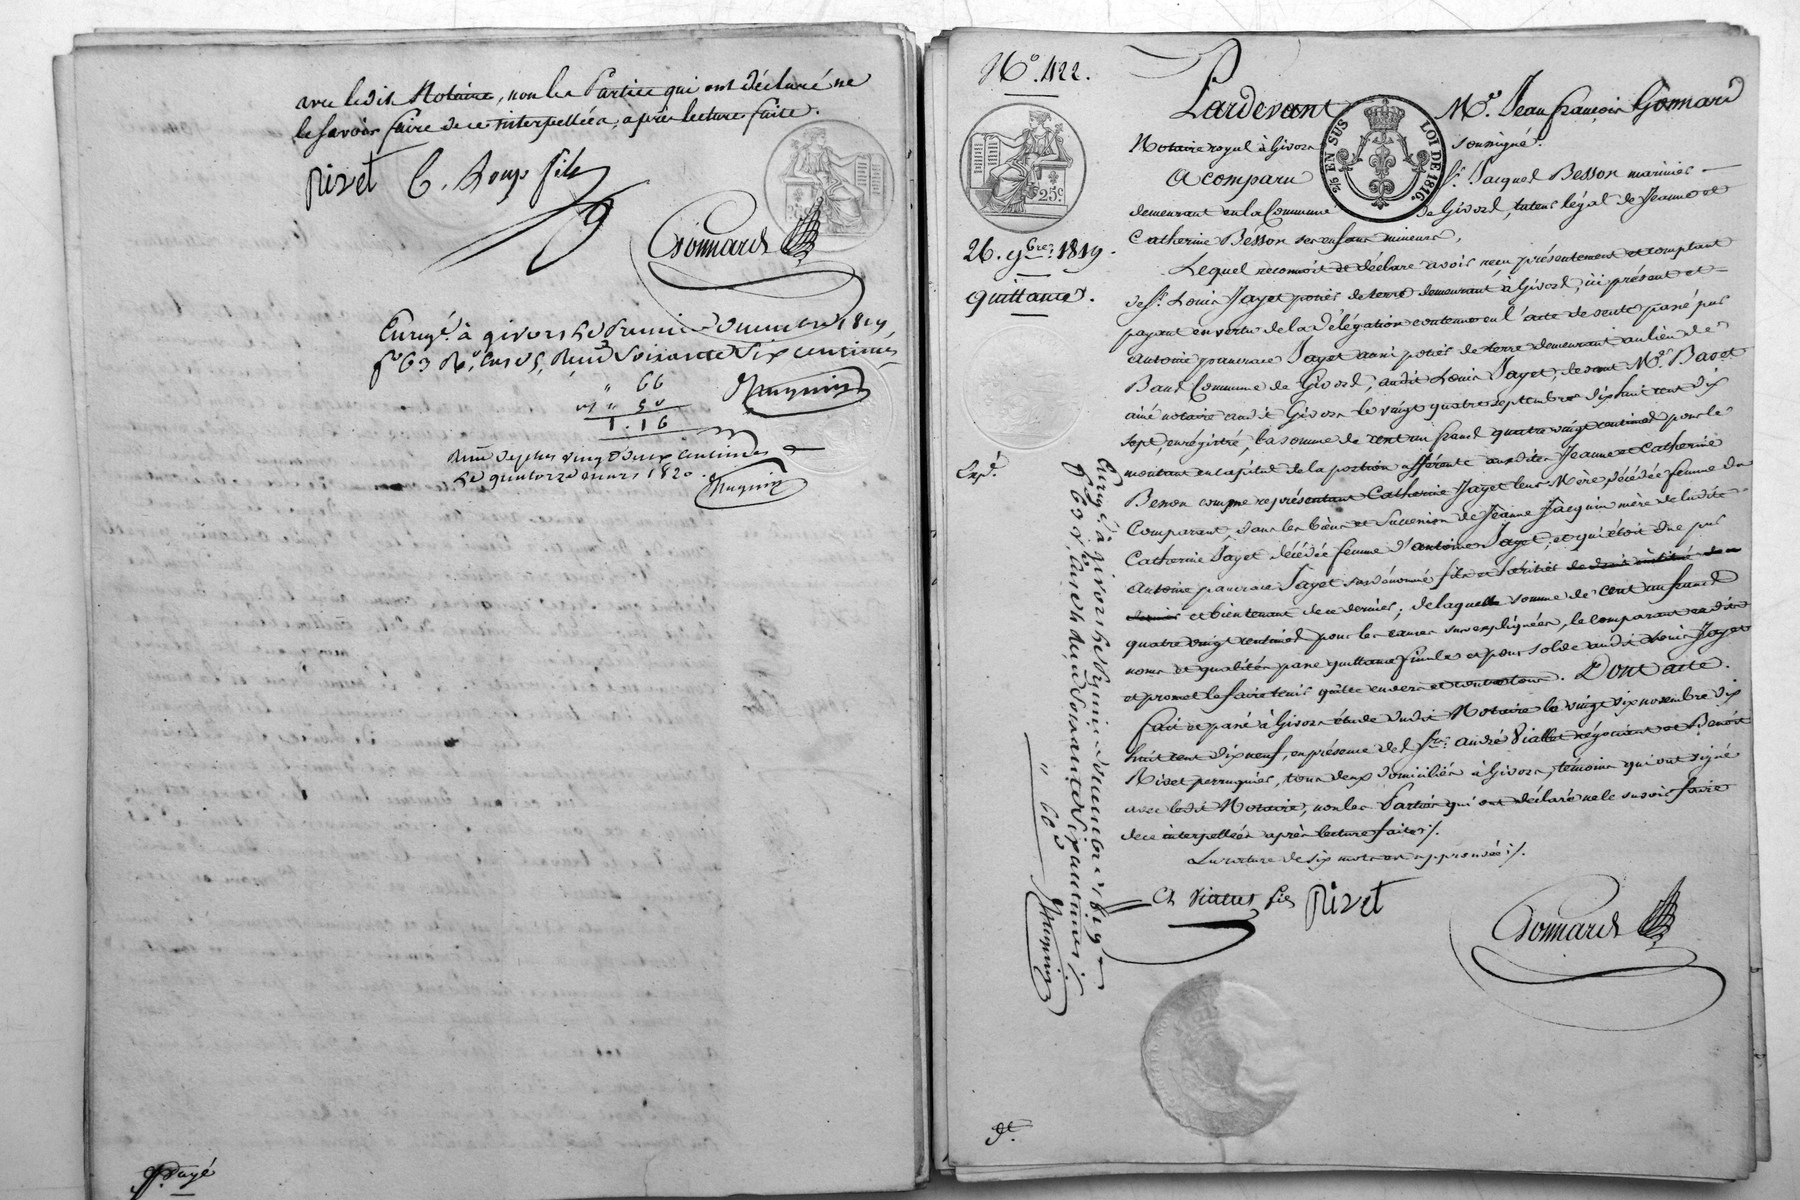 avec ledit Notaire, non les Parties qui ont déclaré ne
le savoir faire de ce interpellées, après lecture faite.
Rivet C. Loup fils
Gonnard
Enreg.é à givors le premier décembre 1819,
f.o 63 R.o, Cases 5, Reçu soixante six centimes
" 66
" 50
1.16
Reçu de plus vingt deux centimes
Le quatorze mars 1820.
P. Payé
N.o 422.
25c.
26. 9bre 1819.
Quittance.
Exp.é
Pardevant M.e Jean françois Gonnard
2/10 EN SUS LOI DE 1816.
Notaire royal à Givors soussigné.
A comparu S.r Jacques Besson marinier
demeurant en la Commune de Givors, tuteur légal de Jeanne et
Catherine Besson ses enfans mineurs,
Lequel reconnoit et déclare avoir reçu présentement et comptant
de S.r Louis Jayet potier de terre demeurant à Givors, ici présent et
payant en vertu de la délégation contenue en l'acte de vente passé par
Antoine pancrace Jayet aussi potier de terre demeurant au lieu de
Bans Commune de Givors, audit Louis Jayet, devant M.e
ainé notaire audit Givors le vingt quatre septembre dix huit cent dix
sept, enrégistré, la somme de cent un francs quatre vingt centimes pour le
montant en capital de la portion afférente auxdites Jeanne et Catherine
Besson comme représentant Catherine Jayet leur Mère, décédée femme du
Comparant, dans les biens et succession de Jeanne Jacquin mère de ladite
Catherine Jayet décédée femme d'antoine Jayet, et qui étoit due par
Antoine pancrace Jayet susdénommé fils et héritier
et bientenant de ce dernier; de laquelle somme de cent un francs
quatre vingt centimes pour les causes sus expliquées, le comparant en dits
noms et qualités passe quittance finale et pour solde audit Louis Jayet
et promet le faire tenir quitte envers et contre tous. Dont acte.
fait et passé à Givors étude dudit Notaire le vingt six novembre dix
huit cent dix neuf, en présence de S.rs André Viallet négociant et Benoit
Rivet perruquier, tous deux domiciliés à Givors, témoins qui ont signé
avec ledit Notaire, non les Parties qui ont déclaré ne le savoir faire
de ce interpellées après lecture faite ./.
La rature de six mots est approuvée ./.
fils Rivet
Gonnard
Enreg.é à givors le premier décembre 1819
f.o 63 Reçu soixante six centimes
" 66